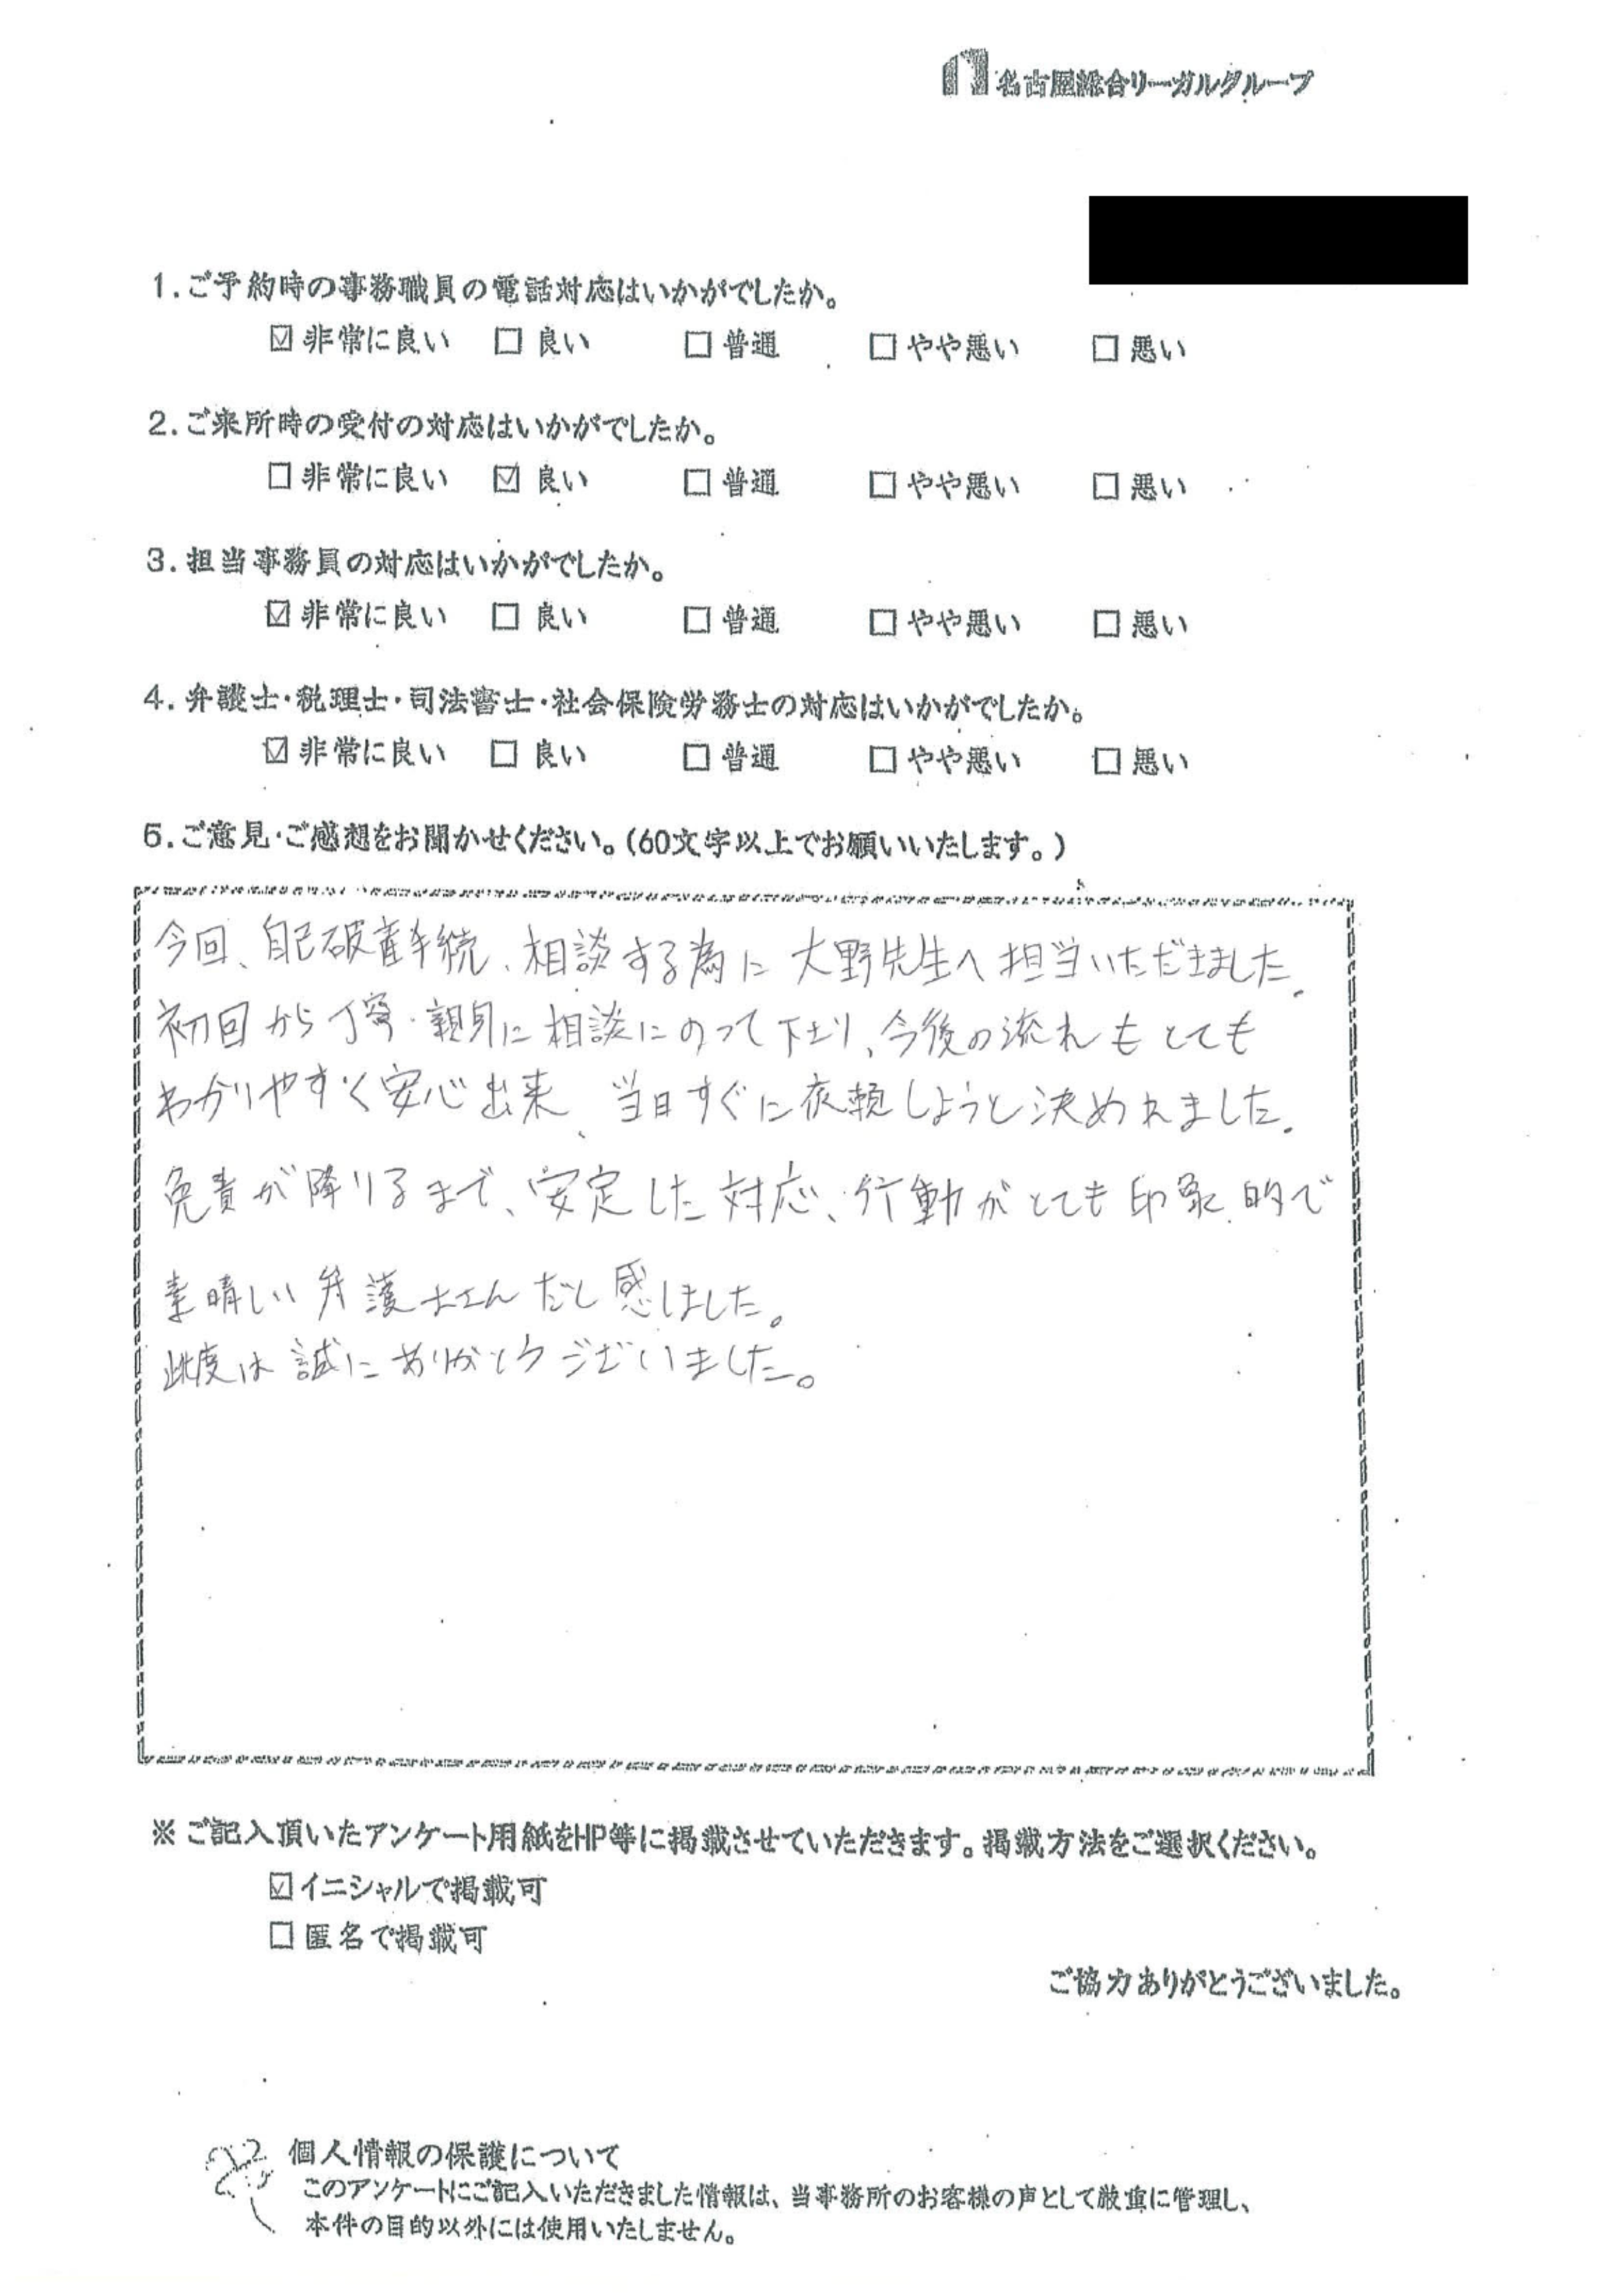 名古屋総合リーガルグループ
1.ご予約時の事務職員の電話対応はいかがでしたか。
☑非常に良い □良い □普通 □やや悪い □悪い
2.ご来所時の受付の対応はいかがでしたか。
□非常に良い ☑良い □普通 □やや悪い □悪い
3.担当事務員の対応はいかがでしたか。
☑非常に良い □良い □普通 □やや悪い □悪い
4.弁護士・税理士・司法書士・社会保険労務士の対応はいかがでしたか。
☑非常に良い □良い □普通 □やや悪い □悪い
5.ご意見・ご感想をお聞かせください。(60文字以上でお願いいたします。)
今回、自己破産手続、相談する為に大野先生へ担当いただきました。
初回から丁寧・親身に相談にのって下さり、今後の流れもとても
わかりやすく安心出来、当日すぐに依頼しようと決めれました。
免責が降りるまで、安定した対応、行動がとても印象的で
素晴しい弁護士さんだと感じました。
此度は誠にありがとうございました。
※ご記入頂いたアンケート用紙をHP等に掲載させていただきます。掲載方法をご選択ください。
☑イニシャルで掲載可
□匿名で掲載可
ご協力ありがとうございました。
個人情報の保護について
このアンケートにご記入いただきました情報は、当事務所のお客様の声として厳重に管理し、
本件の目的以外には使用いたしません。